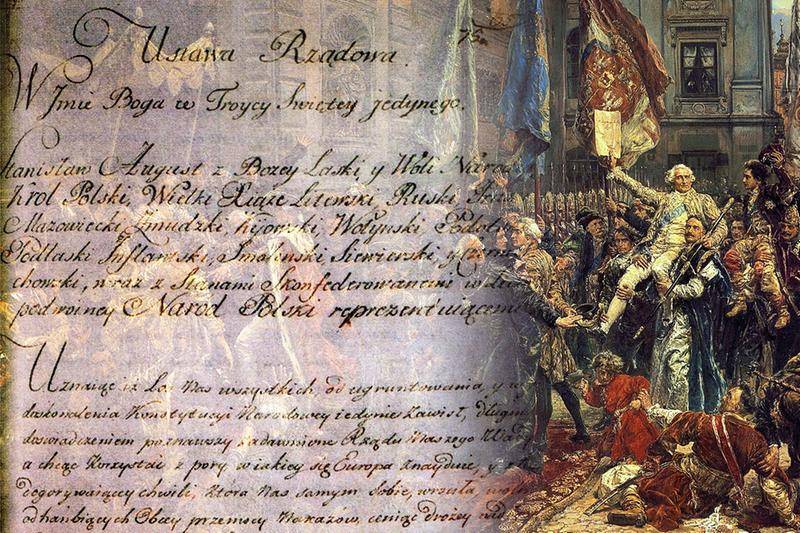 Ustawa Rządowa.
W Jmie Boga w Troycy Swiętey jedynego.
Stanisław August z Bożey Łaski y Woli Narodu
Krol Polski, Wielki Xiąże Litewski, Ruski, Pru
Mazowiecki, Zmudzki, Kijowski, Wołyński, Podol
Podlaski, Inflantski, Smoleński, Siewierski, y Czernie
chowski, wraz z Stanami Skonfederowanemi w licz
podwoiney Narod Polski reprezentuiącemi
Uznaiąc iż Los Nas wszystkich, od ugruntowania, y w
doskonalenia Konstytucyi Narodowey iedynie zawisł, długim
doswiadczeniem poznawszy zadawnione Rządu Naszego Wady
a chcąc korzystać z pory w iakiey się Europa znayduie, y z te
dogorywaiącey chwili, ktora Nas samym Sobie wrociła, woln
od hańbiących Obcey przemocy Nakazow, ceniąc drożey nad